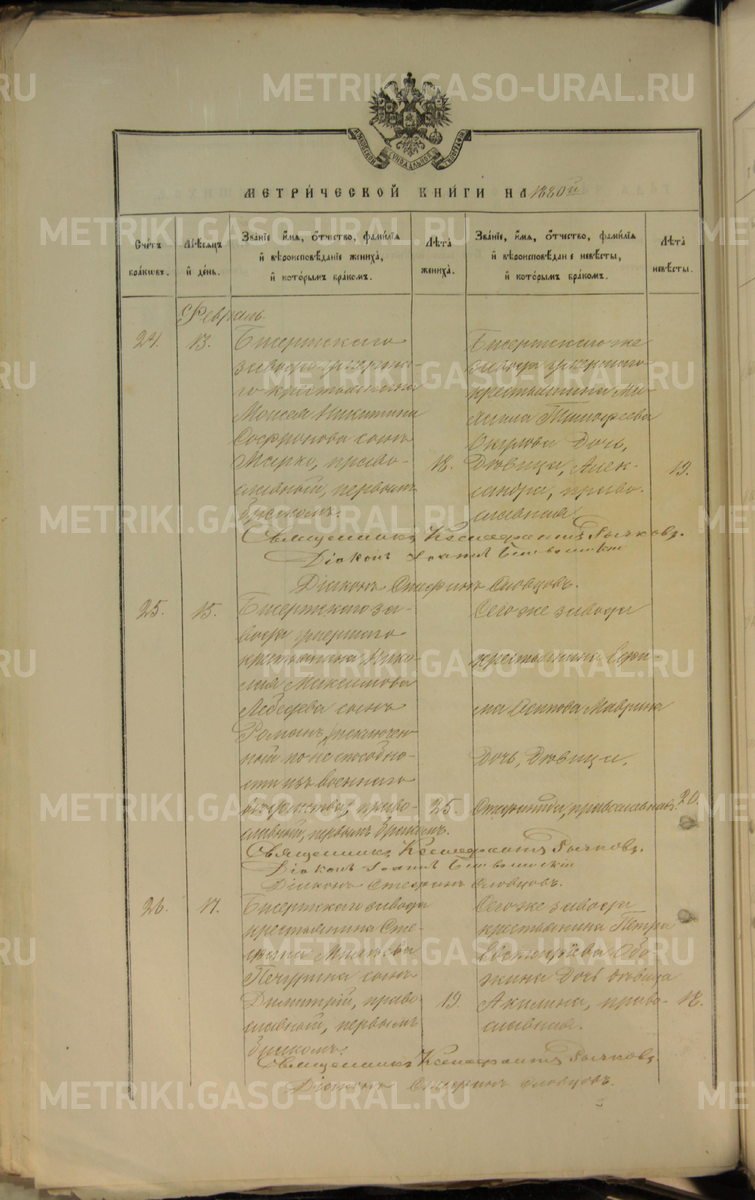 METRIKI.GASO-URAL.RU
МЕТРИ́ЧЕСКОЙ КНИ́ГИ НА 1880й
Счетъ браковъ.
Мѣсяцъ и день.
Званіе, имя, отчество, фамилія и вѣроисповѣданіе жениха, и которымъ бракомъ.
Лѣта жениха.
Званіе, имя, отчество, фамилія и вѣроисповѣданіе невѣсты, и которымъ бракомъ.
Лѣта невѣсты.
Февраль
24. 13.
Бисертскаго
завода
крестьянина
Моисея Никитина
Софронова сынъ
Марко, право-
славный, первымъ
бракомъ.
18.
Бисертскаго же
завода
крестьянина Ми-
хаила Тимофеева
дочь,
Дѣвица, Алек-
сандра, право-
славная
19.
Священникъ Ксенофонтъ Рычковъ.
Діаконъ Іоаннъ
Діаконъ Стефанъ Словцовъ.
25. 15.
Бисертскаго за-
вода
крестьянина
Максимова
Лебедева сынъ
Романъ,
по неспособно-
сти изъ военнаго
право-
славный, первымъ бракомъ.
25.
Сего же завода
крестьянина
Осипова Маврина
дочь, дѣвица,
православная
20.
Священникъ Ксенофонтъ Рычковъ.
Діаконъ Іоаннъ
Діаконъ Стефанъ Словцовъ.
26. 17.
Бисертскаго завода
крестьянина Сте-
Печугина сынъ
Димитрій, право-
славный, первымъ
бракомъ.
19.
Сего же завода
крестьянина Петра
дочь дѣвица
Акилина, право-
славная.
18.
Священникъ Ксенофонтъ Рычковъ.
Діаконъ Стефанъ Словцовъ.